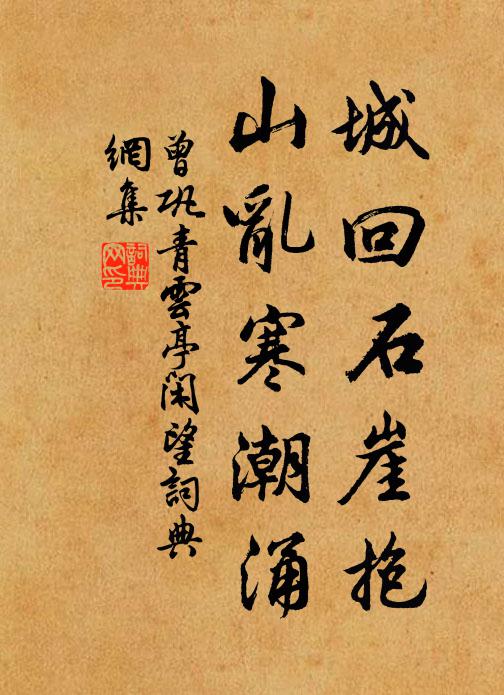 城回石崖抱
山亂寒潮涌
曾巩青雲亭闲望詞典
網集
詞典
网印